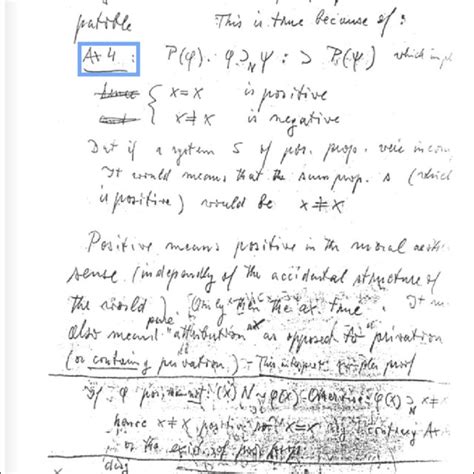 patible This is true because of:
Ax 4: P(φ). φ⊃_N ψ : ⊃ P(ψ) which impl
hence { x=x is positive
and { x≠x is negative
But if a system S of pos. prop. were incom
It would mean that the sum prop. s (which
is positive) would be x≠x
Positive means positive in the moral aesthe
sense (indepen͏dly of the accidental structure of
the world). Only then the ax. true. It m
also mean pure "attribution" as opposed to "privation
(or containing privation). – This interpret. simpler proof
If φ (x) N~φ(x) – Otherwise φ(x) ⊃_N x≠
hence x≠x positive x=x contrary Ax
or the